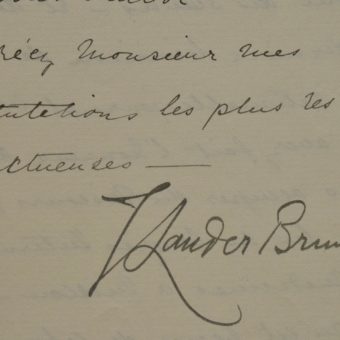 récy Monsieur mes
utations les plus res
ctueuses —
Lander Brun